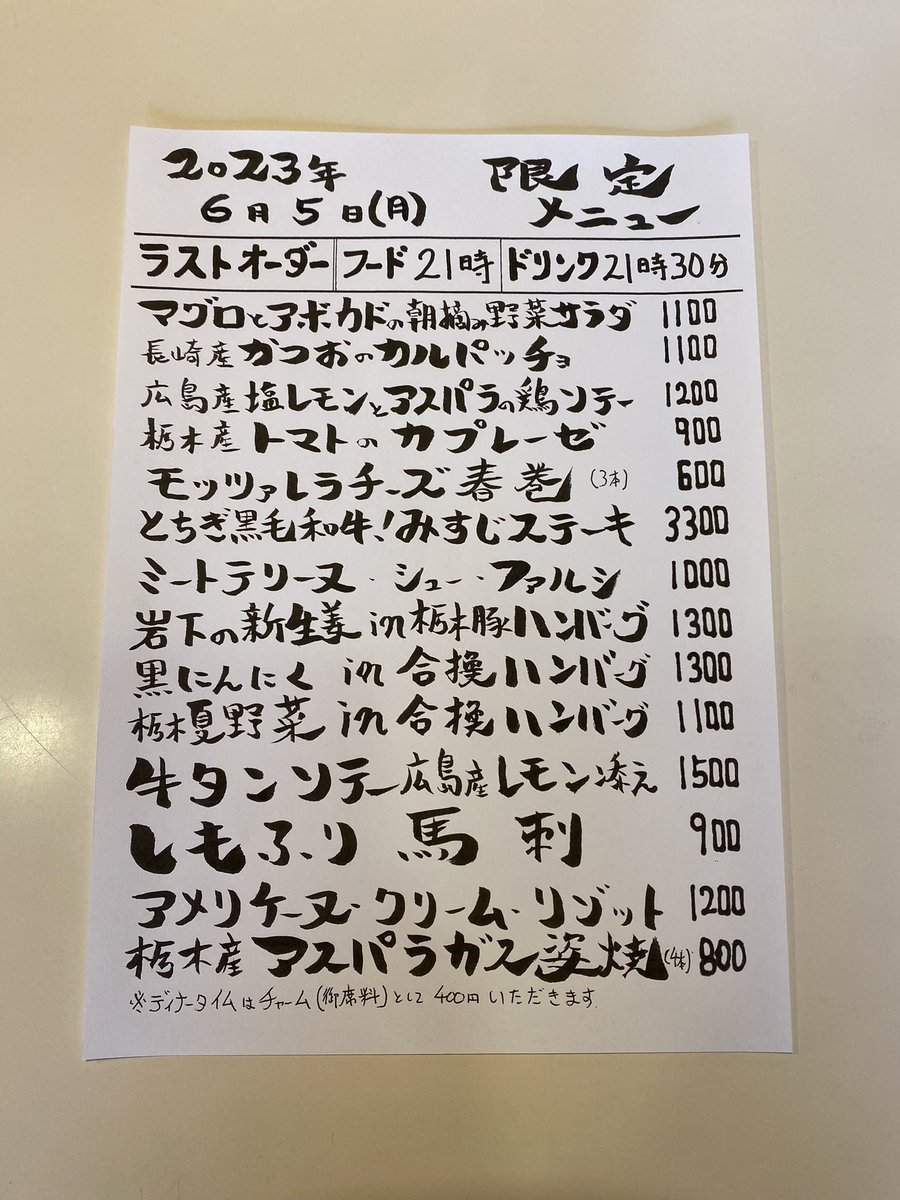 2023年
6月5日(月)
限定
メニュー
ラストオーダー フード21時 ドリンク21時30分
マグロとアボカドの朝摘み野菜サラダ 1100
長崎産かつおのカルパッチョ 1100
広島産塩レモンとアスパラの鶏ソテー 1200
栃木産トマトのカプレーゼ 900
モッツァレラチーズ春巻(3本) 600
とちぎ黒毛和牛!みすじステーキ 3300
ミートテリーヌ・シュー・ファルシ 1000
岩下の新生姜in栃木豚ハンバーグ 1300
黒にんにくin合挽ハンバーグ 1300
栃木夏野菜in合挽ハンバーグ 1100
牛タンソテー広島産レモン添え 1500
しもふり馬刺 900
アメリケーヌ・クリーム・リゾット 1200
栃木産アスパラガス姿焼(4本) 800
※ディナータイムはチャーム(御席料)として400円いただきます.